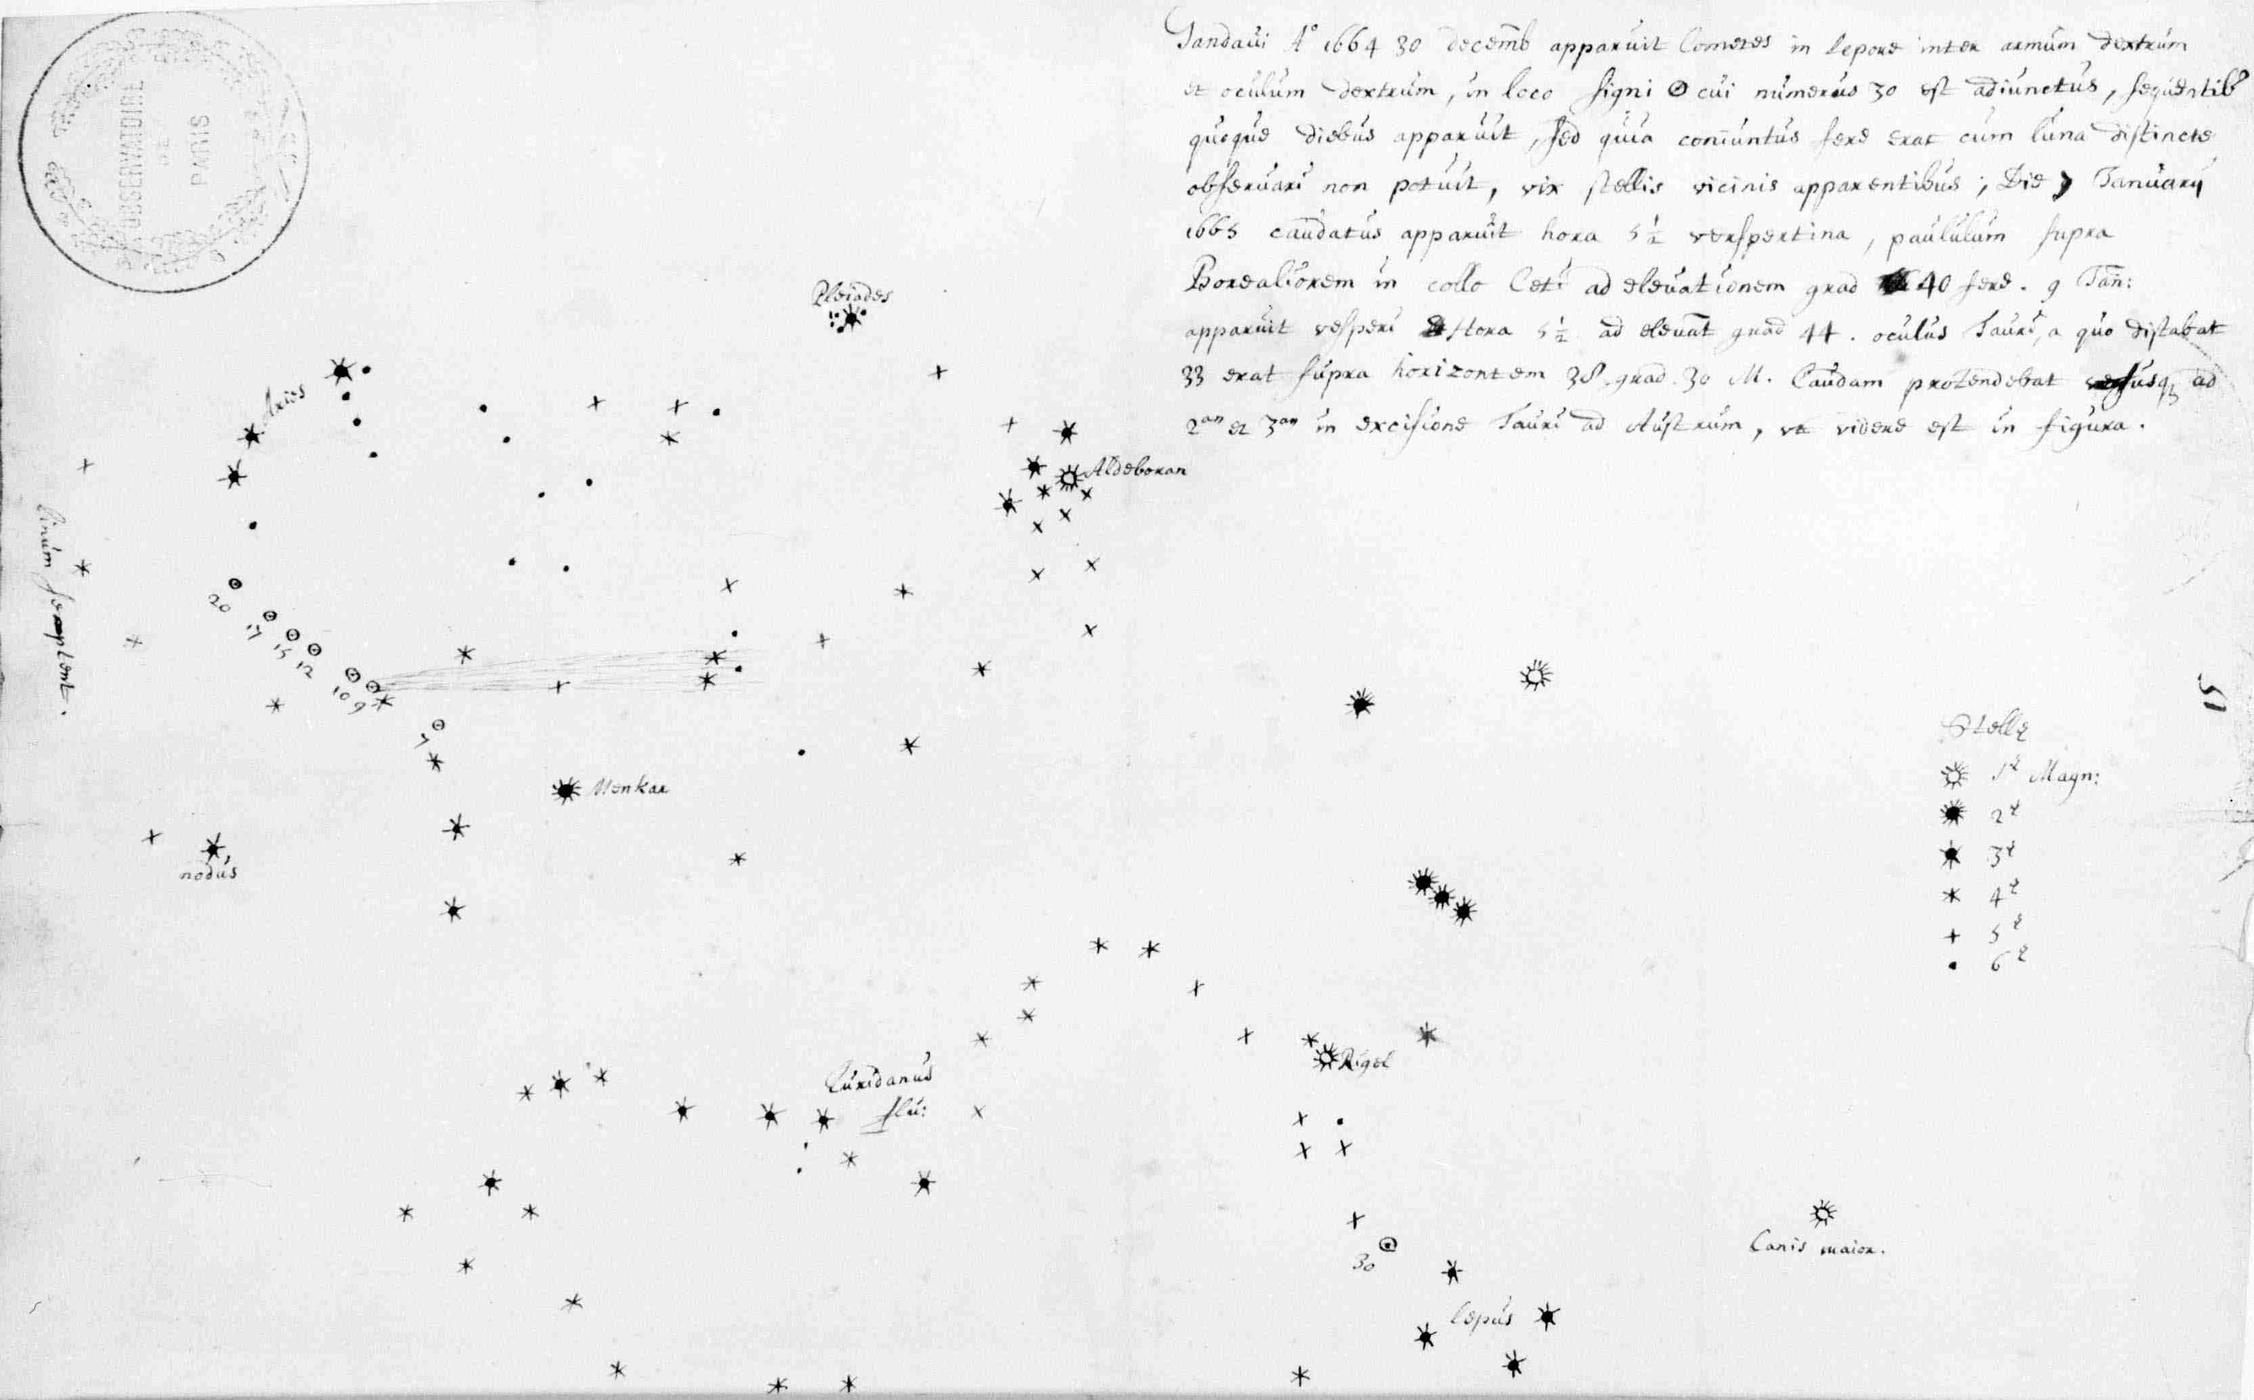 L'OBSERVATOIRE
DE
PARIS
Gandavi A° 1664 30 decemb apparuit Cometes in lepore inter armum dextrum
et oculum dextrum, in loco signi ʘ cui numerus 30 est adiunctus, sequentib
quoque diebus apparuit, sed quia coniuntus fere erat cum luna distincte
observari non potuit, vix stellis vicinis apparentibus; Die 7 Ianuarij
1665 caudatus apparuit hora 5 1/2 verspertina, paululum supra
Borealiorem in collo Ceti ad elevationem grad 40 fere. 9 Ian:
apparuit vesperi Hora 5 1/2 ad elevat grad 44. oculus Tauri, a quo distabat
33 erat supra horizontem 38. grad. 30 M. Caudam protendebat ad
2am et 3am in excisione Tauri ad Austrum, ut videre est in figura.
Pleiades
Aries
Aldeboran
linum septent.
20
17
15
12
10
9
7
Menkar
nodus
Euridanus
flu:
Rigel
30
Lepus
Canis maior.
51
Stellę
1ę Magn:
2ę
3ę
4ę
5ę
6ę